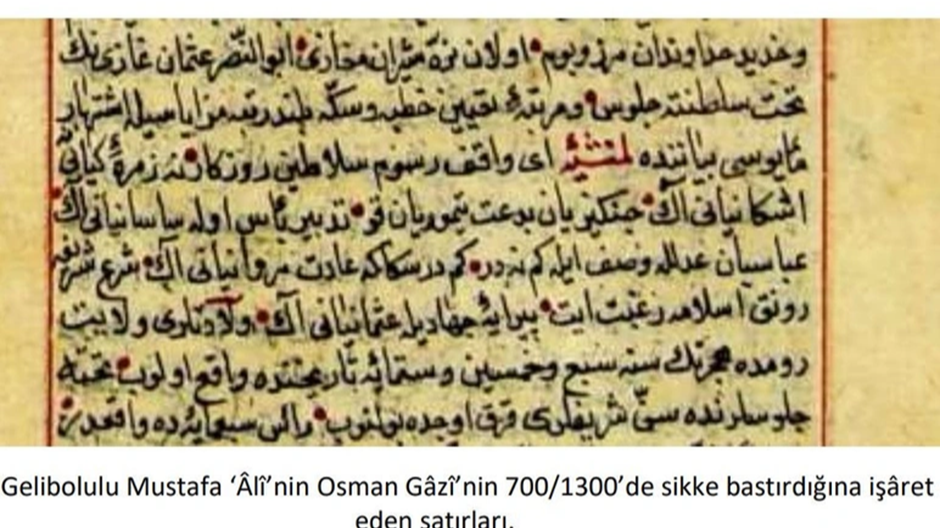 وخدیو خداوندان مرز و بوم اولان نره شیران مغازی ابوالنصر عثمان غازی نك
تخت سلطنته جلوس و مرتبهٔ تعیین خطبه و سکه بلند رتبه مزایا سیله اشتهار
مأیوسی بیاننده لمنشئه ای واقف رسوم سلاطین روزکار نه زمرهٔ کیانی
اشکانیانی آك جنکیزیان بدعت تیموریان قو تدبیر ناس اوله ساسانیانی آك
عباسیان عدلله وصف ایله کم نه در کم در سکا که عادت مروانیانی آك شرع شریفه
رونق اسلامه رغبت ایت پیرایهٔ جهاد ایله عثمانیانی آك ولادتلری ولایت
رومده هجرتك سنه سبع وخمسین وستمائه تاریخنده واقع اولوب تختنه
جلوسلرنده سنّ شریفلری قرق اوچده بولنوب رأس سبعمایه ده واقعدر
Gelibolulu Mustafa ‘Âlî’nin Osman Gâzî’nin 700/1300’de sikke bastırdığına işâret
eden satırları.